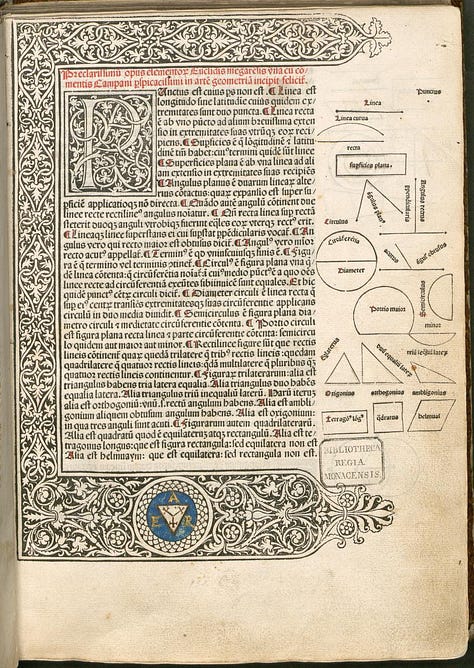 Preclarissimū opus elementoꝝ Euclidis megarēsis vna cū cō
mentis Campani pspicacissimi in artē geometriā incipit felicit̄.
PUnctus est cuius ps non est. ¶ Linea est
longitudo sine latitudine cuius quidem ex-
tremitates sunt duo puncta. ¶ Linea recta
ē ab vno pūcto ad aliū breuissima exten
sio in extremitates suas vtrūqꝫ eoꝝ reci
piens. ¶ Supficies ē q̄ lōgitudinē ⁊ latitu
dinē tm̄ habet: cuꝰ termini quidē sūt linee.
¶ Supficies plana ē ab vna linea ad ali
am extensio in extremitates suas recipiēs
¶ Angulus planus ē duarum linearū alte-
rius cōtactus: quaꝝ expansio est super su-
pficiē applicatioqꝫ nō directa. ¶ Quādo aūt angulū cōtinent due
linee recte rectilineꝰ angulus noīatur. ¶ Qn̄ recta linea sup rectā
steterit duoqꝫ anguli vtrobiqꝫ fuerint eq̄les: eoꝝ vterqꝫ rectꝰ erit.
¶ Lineaqꝫ linee supstans ei cui supstat ppēdicularis vocat̄. ¶ An
gulus vero qui recto maior est obtusus dicit̄. ¶ Angulꝰ vero mīor
recto acutꝰ appellat̄. ¶ Terminꝰ ē qd̄ vniuscuiusqꝫ finis ē. ¶ Figu
ra ē q̄ termino vel terminis cōtinet̄. ¶ Circulꝰ ē figura plana vna q̄-
dē linea cōtenta: q̄ circūferētia noīat̄: in cuiꝰ medio pūctꝰ ē: a quo oēs
linee recte ad circūferētiā exeūtes sibiinuicē sunt equales. Et hic
quidē pūctꝰ cētrū circuli dicit̄. ¶ Diameter circuli ē linea recta q̄
sup eiꝰ centrū transiēs extremitatesqꝫ suas circūferentie applicans
circulū in duo media diuidit. ¶ Semicirculus ē figura plana dia-
metro circuli ⁊ medietate circūferentie cōtenta. ¶ Portio circuli
est figura plana recta linea ⁊ parte circūferētie cōtenta: semicircu-
lo quidem aut maior aut minor. ¶ Rectilinee figure sūt que rectis
lineis cōtinent̄ quarū quedā trilatere q̄ tribꝰ rectis lineis: quedam
quadrilatere q̄ quatuor rectis lineis: q̄dā multilatere que pluribus qꝫ
quatuor rectis lineis continent̄. ¶ Figuraꝝ trilateraꝝ: alia est
triangulus habens tria latera equalia. Alia triangulus duo habēs
equalia latera. Alia triangulus triū inequaliū laterū. Haꝝ iterū
alia est orthogoniū: vnū .s. rectū angulum habens. Alia est ambli-
gonium aliquem obtusum angulum habens. Alia est oxigonium:
in qua tres anguli sunt acuti. ¶ Figuraꝝ autem quadrilateraꝝ
Alia est quadratū quod ē equilaterū atqꝫ rectangulū. Alia est te-
tragonus longus: que est figura rectangula: sed equilatera non est.
Alia est helmuaym: que est equilatera: sed rectangula non est.
Punctus
Linea
Linea curua
recta
supficies plana.
āgulus planꝰ
Angulus rectus
ppendicularis
Circulus
Circūferētia
acutus
āgulꝰ obtusus
Diameter
Portio maior
Semicirculus
minor
Equilaterus
duū equaliū laterū
triū īequaliū laterū
Origonius
orthogonius
ambligonius
Tetragōꝰ lōgꝰ
q̄dratus
helmuaī
BIBLIOTHECA
REGIA
MONACENSIS.
A
E R